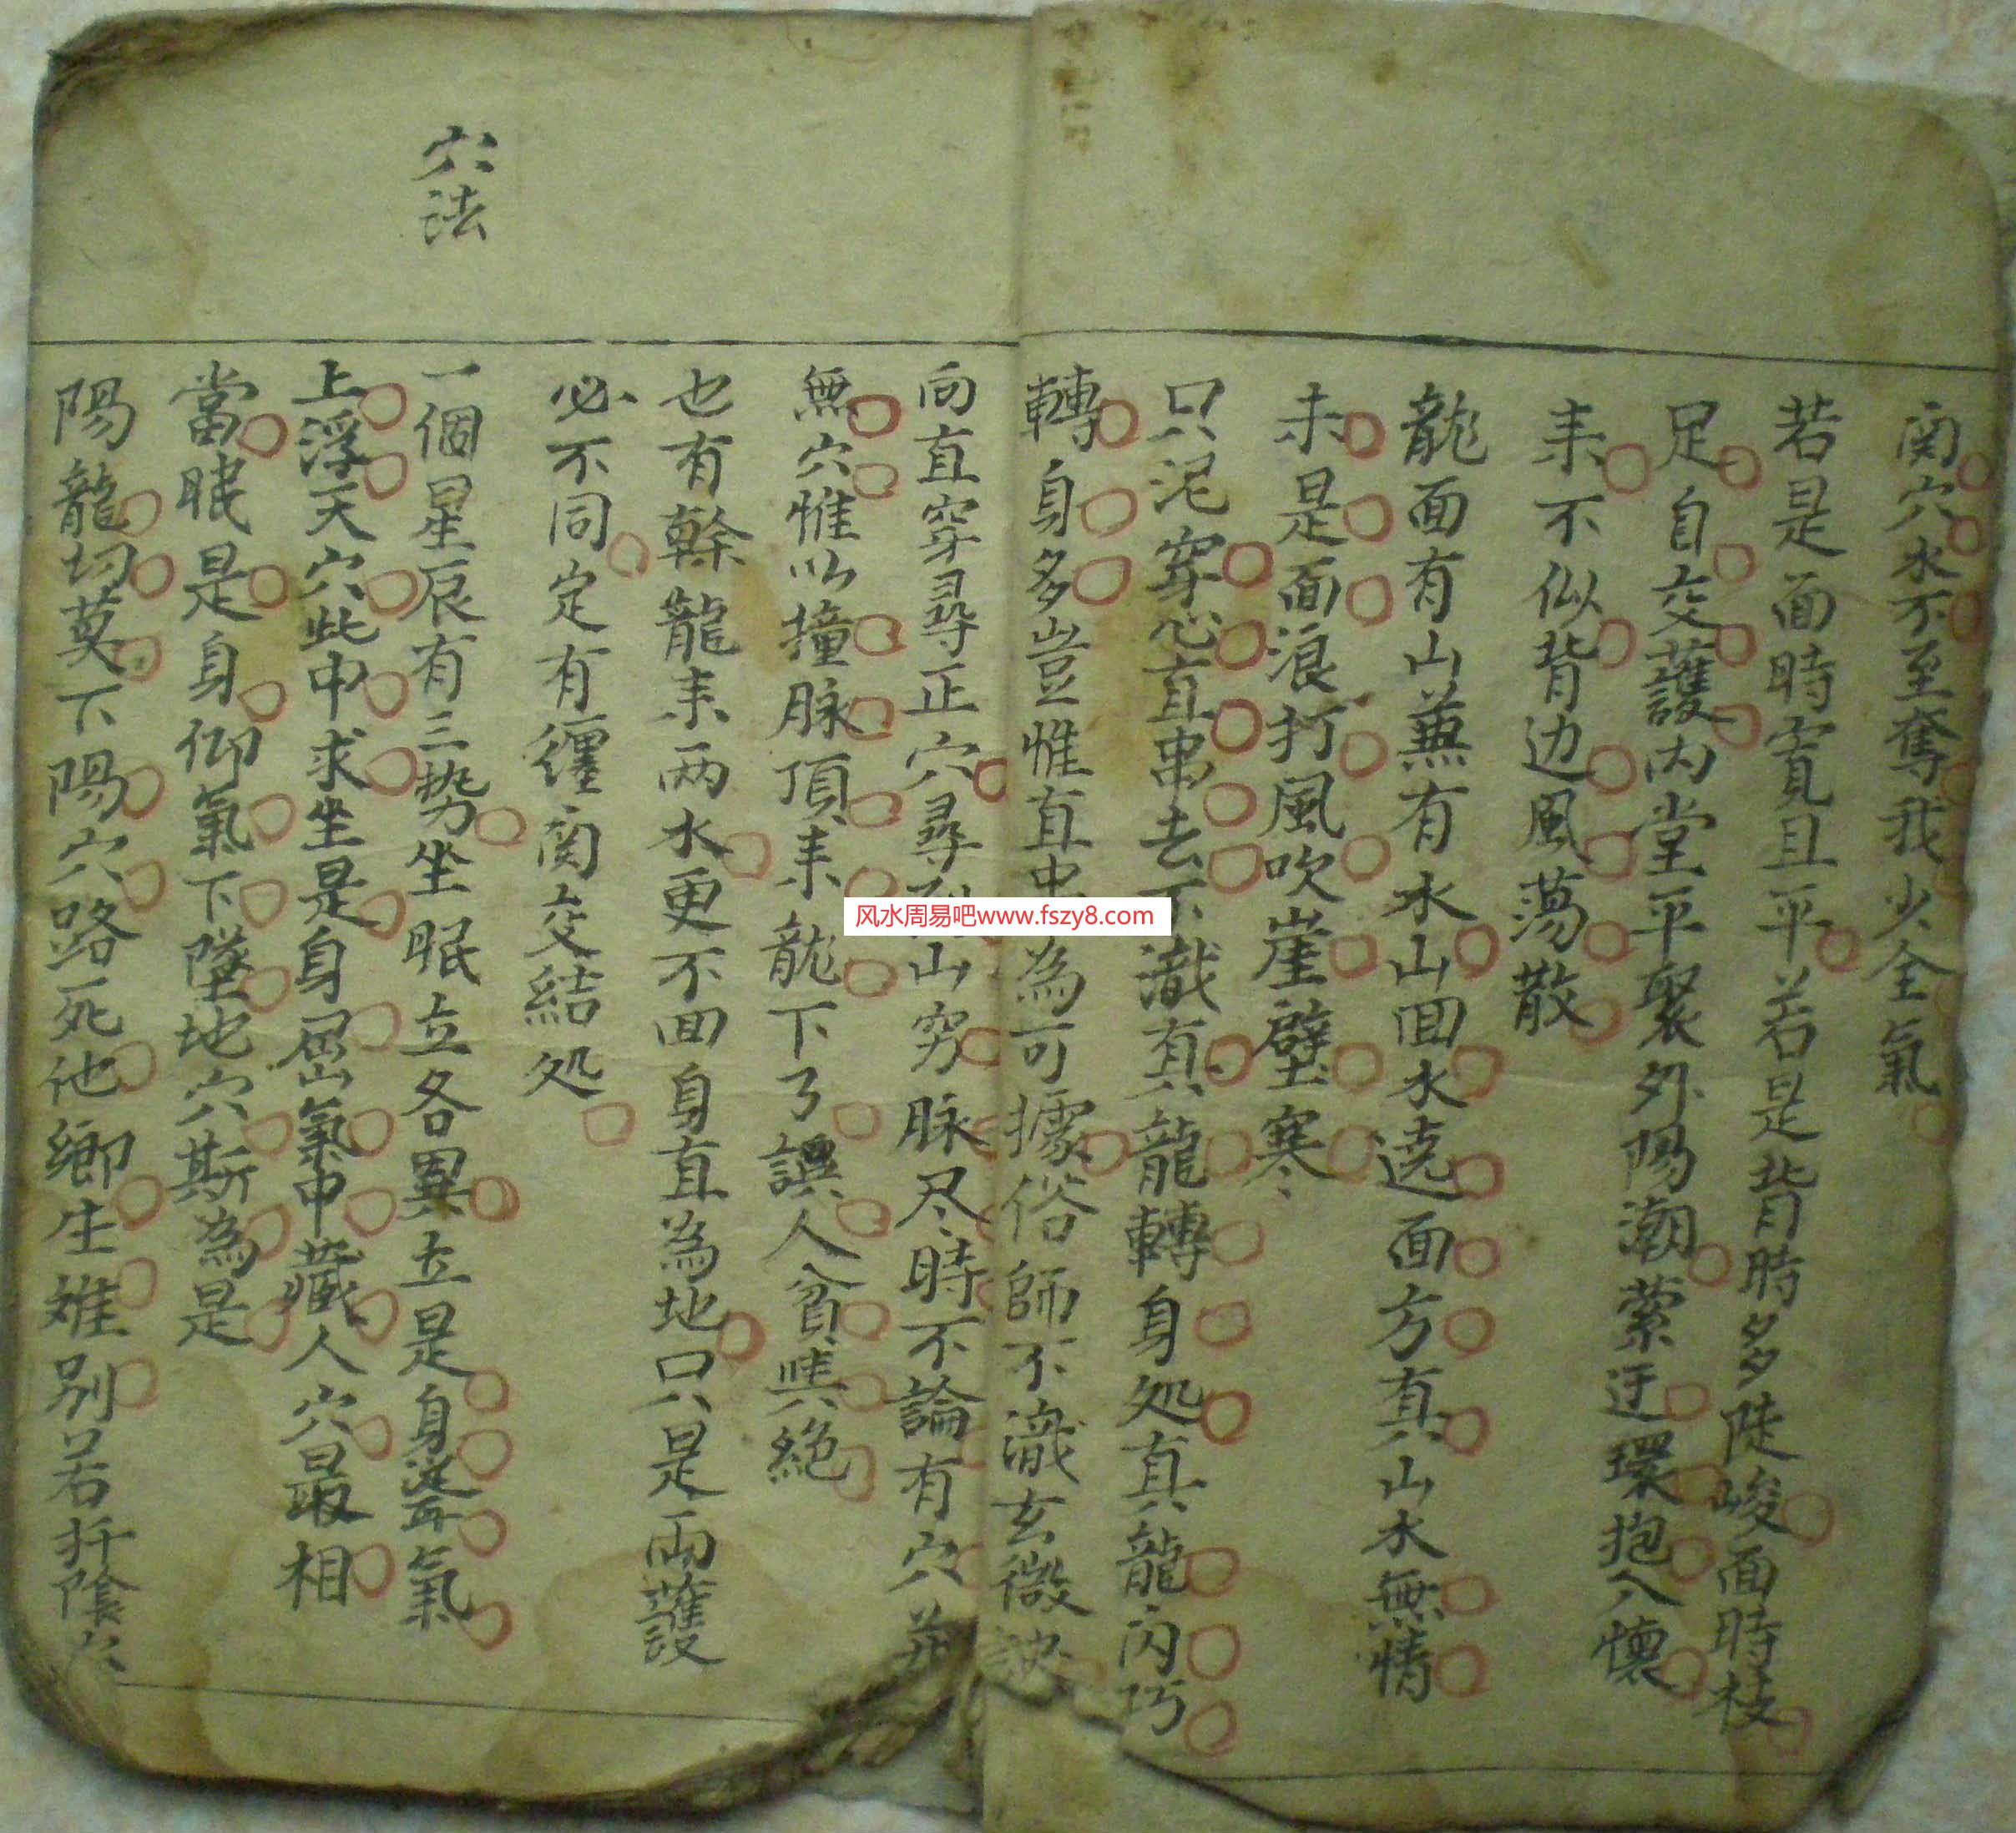 穴水不至奪我少全氣
若是面時寬且平若是背時多陡峻面時枝
足自交護內堂平聚外陽潮縈迂環抱入懷
耒不似背边風蕩散
龍面有山兼有水山回水遶面方真山水無情
未是面浪打風吹崖壁寒
只泥穿心直串去不識真龍轉身処真龍內巧
轉身多豈惟直串為可據俗師不識玄微訣
向直穿尋正穴尋到山窮脉尽時不論有穴并
無穴惟以撞脉頂耒龍下了誤人貧與絕
也有幹龍耒兩水更不回身直為地只是兩護
必不同定有纏関交結処
穴法
一個星辰有三势坐眠立各異立是身聳氣
上浮天穴此中求坐是身屈氣中藏人穴最相
當眠是身仰氣下墜地穴斯為是
陽龍切莫下陽穴路死他鄉生难別若扦陰穴
风水周易吧www.fszy8.com